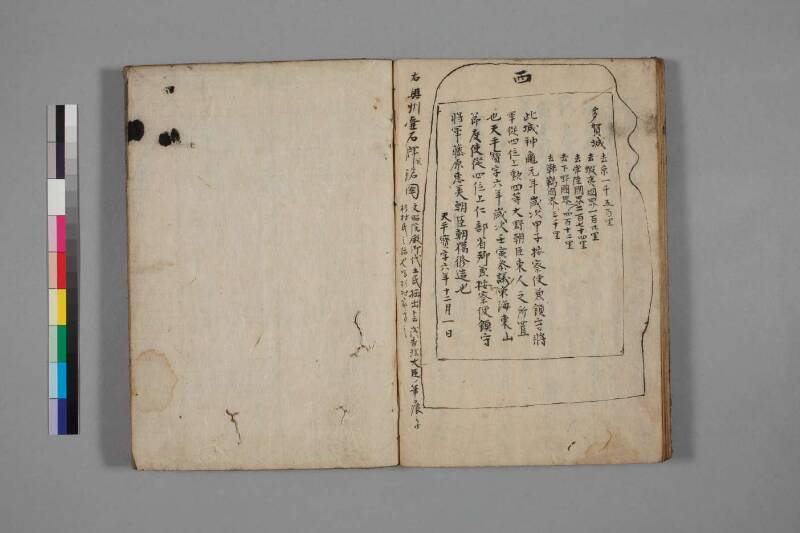 西
多賀城
去京一千五百里
去蝦夷國界一百廿里
去常陸國界二百七十四里
去下野國界四百十二里
去靺鞨國界三千里
此城神龜元年歲次甲子按察使兼鎮守將
軍從四位上勳四等大野朝臣東人之所置
也天平寶字六年歲次壬寅參議東海東山
節度使從四位上仁部省卿兼按察使鎮守
將軍藤原惠美朝臣朝獦修造也
天平寶字六年十二月一日
右奥州壷石碑銘圖